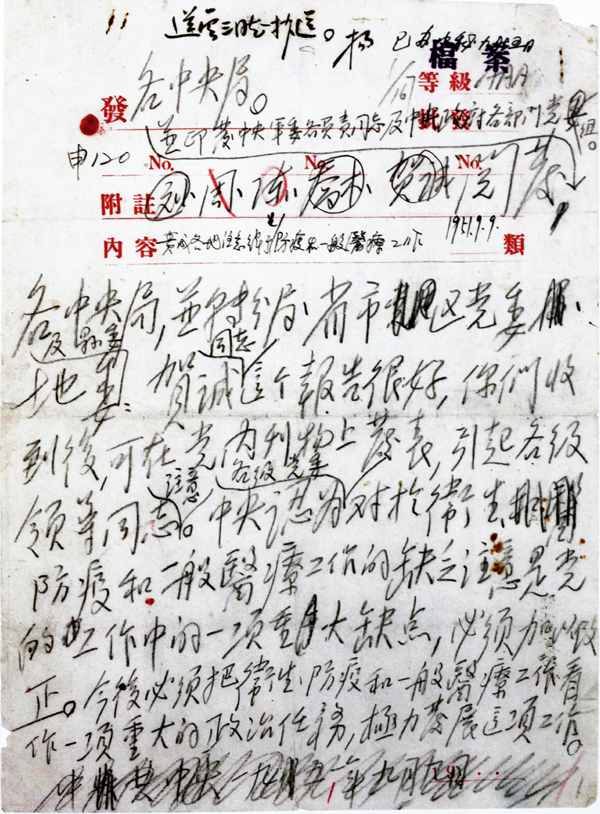 送云三时一抄送。杨
档案
各中央局。
等级
发
并印发中央军委各负责同志及中央政府各部门党组。
申120 No. No. No.
附註 刘 周 陈 乔木 贺诚
内容 责成各地注意领导防疫和一般醫療工作 1951.9.9. 類
各中央局,並转分局、省市区党委、
及县委 同志
地委:贺诚这个報告很好,你們收
到後,可在党内刊物上發表,引起各级
注意 各级党委
领导同志。中央认为对於衛生
防疫和一般醫療工作的缺乏注意是党
的工作中的一项重大缺点,必须加以改
正。今後必须把衛生防疫和一般醫療工作看
作一项重大的政治任務,極力發展这项工作。
中央 一九五一年九月